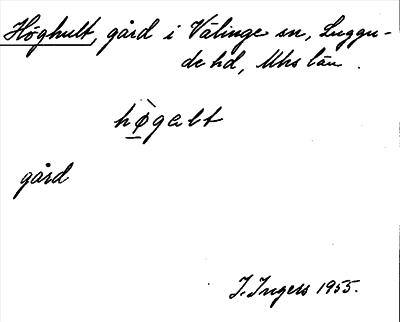 Höghult, gård i Välinge sn, Luggu-
de hd, Mhs län.
hø̀galt
gård
I. Ingers 1955.